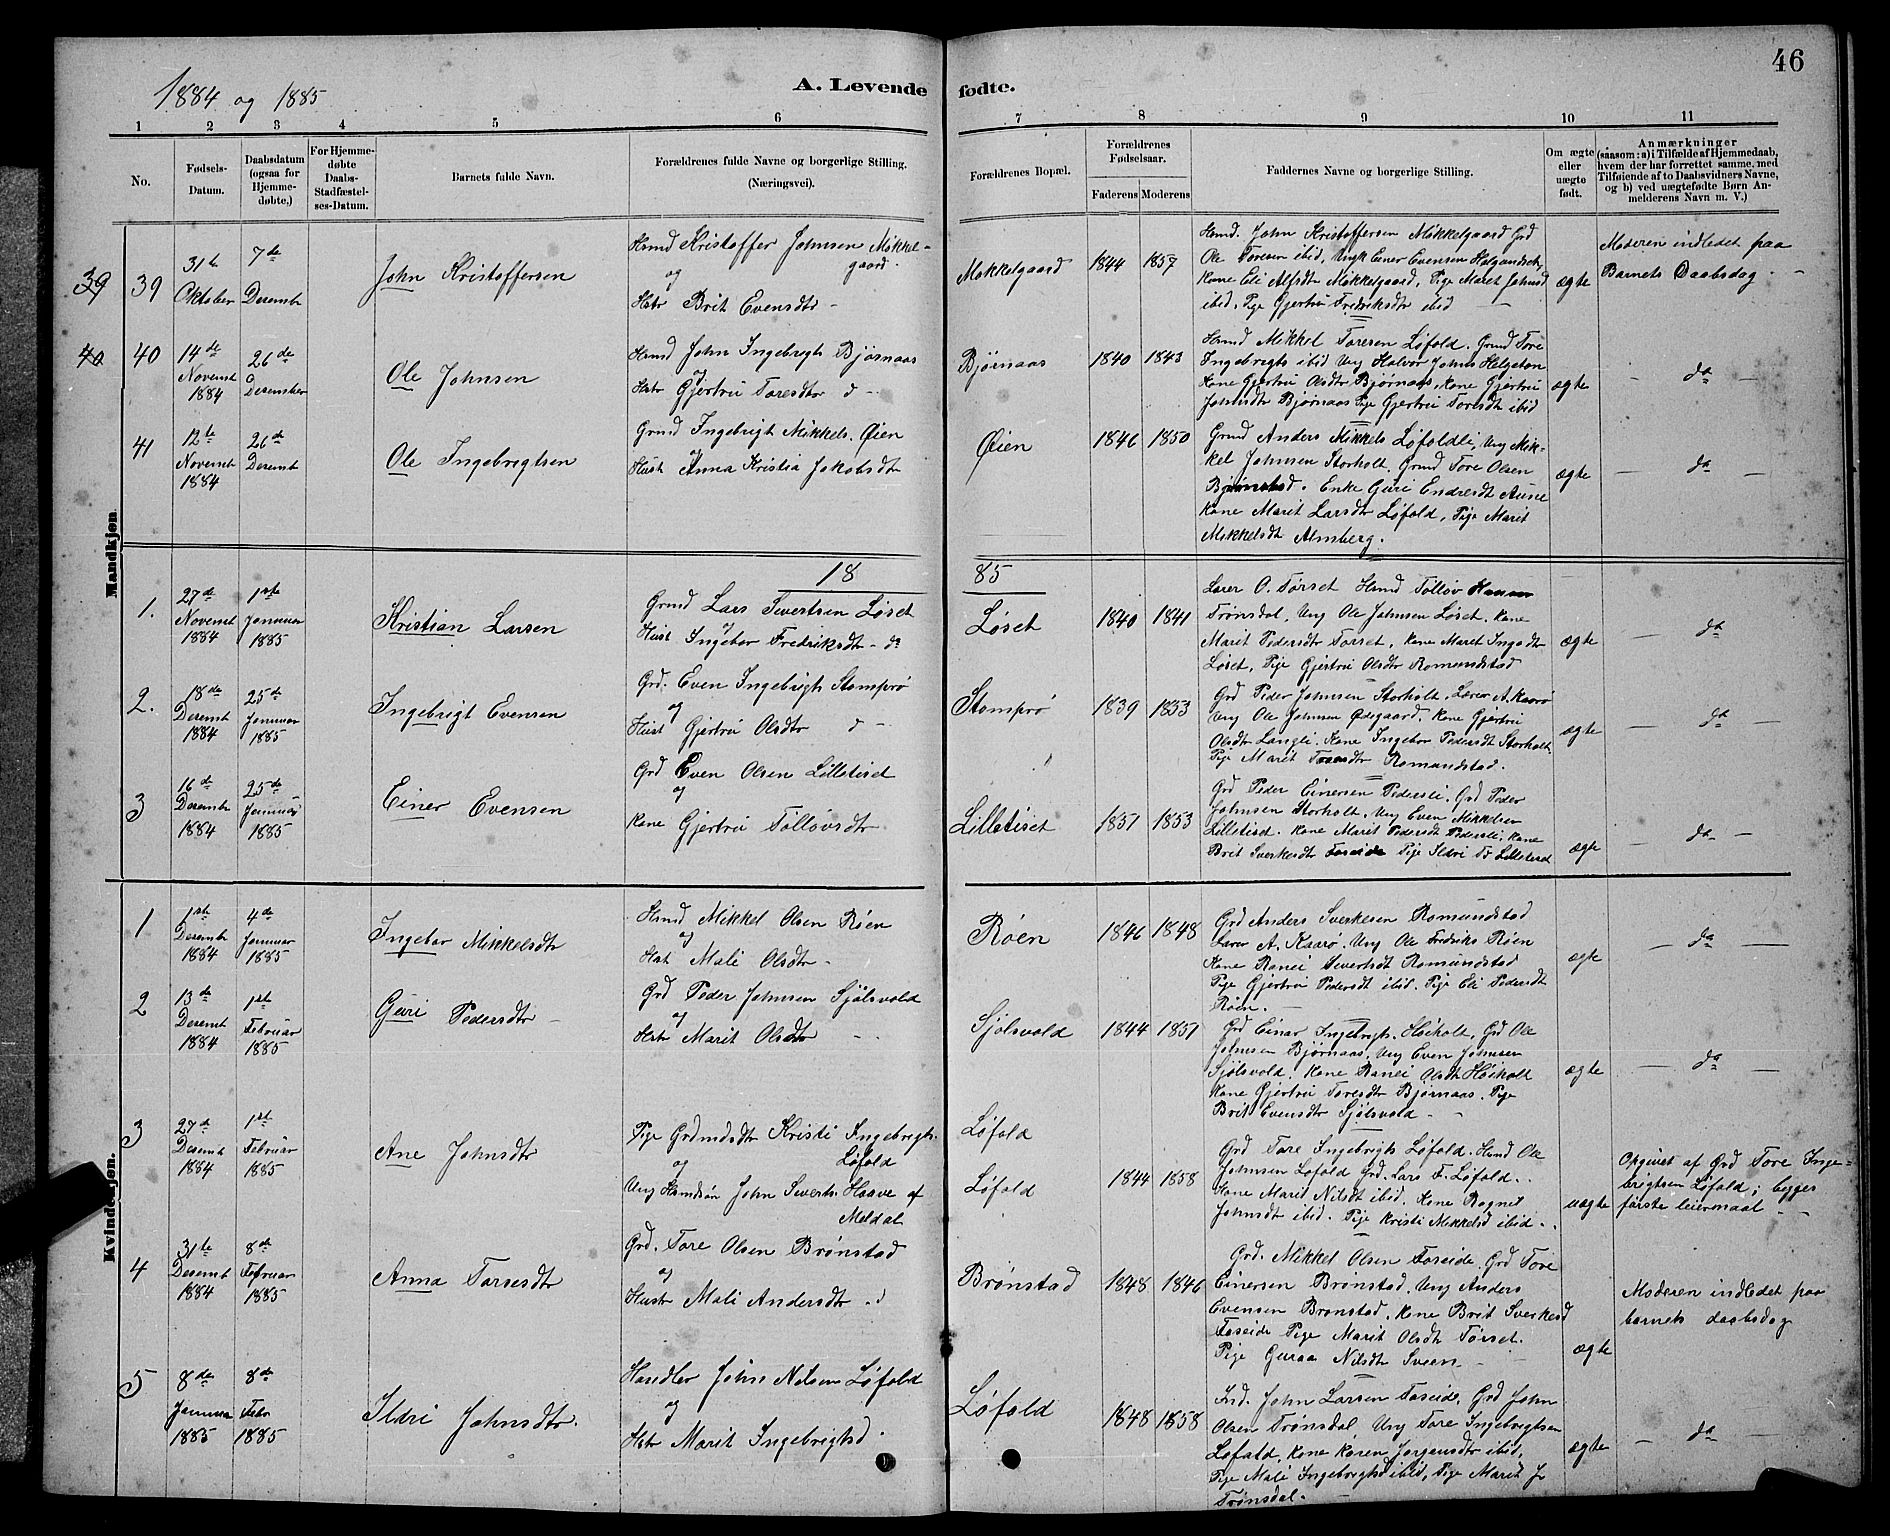 46
1884 og 1885
A. Levende fødte.
1 2 3 4 5 6 7 8 9 10 11
No.
Fødsels-
Datum.
Daabsdatum
(ogsaa for
Hjemme-
døbte,)
For Hjemme-
døbte
Daabs-
Stadfæstel-
ses-Datum.
Barnets fulde Navn.
Forældrenes fulde Navne og borgerlige Stilling.
(Næringsvei).
Forældrenes Bopæl.
Forældrenes
Fødselsaar.
Faderens Moderens
Faddernes Navne og borgerlige Stilling.
Om ægte
eller
uægte
født.
Anmærkninger
(saasom: a) i Tilfælde af Hjemmedaab,
hvem der har forrettet samme, med
Tilføiende af to Daabsvidners Navne,
og b) ved uægtefødte Børn An-
melderens Navn m. V.)
Mandkjøn.
39 39
31te
Oktober
7de
Desemb
John Kristoffersen
Hsmd Kristoffer Johnsen Mokkel-
gaard.
og
Hstr Brit Evensdtr
Mokkelgaard
1844 1857
Hsmd. John Kristoffersen Mokkelgaard Grd
Ole Toresen ibid, Ungk Einer Evensen
Kone Eli Mokkelgaard, Pige Marit Johnsd
ibid, Pige Gjertru Fredriksdtr ibid
ægte
Moderen indledet paa
Barnets Daabsdag.
40 40
14de
Novemb
1884
26de
Desember
Ole Johnsen
Hsmd John Ingebrigts Bjørnaas
og
Hstr Gjertru Toresdtr d
Bjørnaas
1840 1843
Hsmd Mikkel Toresen Løfold. Grmd Tore
Ingebrigts ibid Ung Halvor Johns Helgeton
Kone Gjertru Olsdtr Bjørnaas, Kone Gjertru
Johnsdtr Bjørnaas Pige Gjertru Toresdt ibid
ægte
da
41
12te
Novemb
1884
26de
Desemb
Ole Ingebrigtsen
Grmd Ingebrigt Mikkels. Øien
og
Hust Anna Kristia Jakobsdt
Øien
1846 1850
Grmd Anders Mikkels Løfoldli, Ung Mik-
kel Johnsen Storholt. Grmd Tore Olsen
Enke Guri Endresdt Aune
Kone Marit Larsdtr Løfold, Pige Marit
Mikkelsdt Almberg.
ægte
da
18 85
1.
27de
Novemb
1884
1ste
Januar
1885
Kristian Larsen
Grmd Lars Sivertsen Løset
og
Hust Ingebor Fredriksdtr - do
Løset
1840 1841
Lærer O. Tørset Hsmd Tølløv
Trønsdal, Ung Ole Johnsen Løset. Kone
Marit Pedersdtr Tørset, Kone Marit Ingsdtr
Løset, Pige Gjertru Olsdtr Romundstad
ægte
da
2.
18de
Desemb
1884
25de
Januar
1885
Ingebrigt Evensen
Grd. Even Ingebrigts Stomprø
og
Hust Gjertru Olsdtr d
Stomprø
1839 1853
Grd Peder Johnsen Storholt, Lærer A. Kaarø
Ung Ole Johnsen Ødegaard, Kone Gjertru
Olsdtr Langli. Kone Ingebor Pedersdt Storholt
Pige Marit Toresdtr Romundstad.
ægte
da
3
16de
Desemb
1884
25de
Januar
1885
Einer Evensen
Grd Even Olsen Lilletiset
og
Kone Gjertru Tølløvsdtr
Lilletiset
1837 1853
Grd Peder Einersen Pedersli, Grd Peder
Johnsen Storholt. Ung Even Mikkelsen
Lilletisd. Kone Marit Pedersdt Pedersli, Kone
Brit Sverkesdtr Foseide Pige Ildri Lilletised
ægte
da
Kvindekjøn.
1
1ste
Desemb
1884
4de
Januar
1885
Ingebor Mikkelsdtr
Hsmd Mikkel Olsen Røen
og
Hst Mali Olsdtr -
Røen
1846 1848
Grd Anders Sverkesen Romundstad
Lærer A. Kaarø. Ung Ole Fredriks Røen
Kone Ranei Sivertsdt Romundstad
Pige Gjertru Pedersdt ibid. Pige Eli Pedersdt
Røen.
ægte
da
2
13de
Desemb
1884
1ste
Februar
1885
Guri Pedersdtr
Grd Peder Johnsen Sjølsvold
og
Hstr Marit Olsdtr
Sjølsvold
1844 1851
Grd Einar Ingebrigts. Høiholt, Grd Ole
Johnsen Bjørnaas, Ung Even Johnsen
Sjølsvold. Kone Ranei Olsdt Høiholt
Kone Gjertru Toresdtr Bjørnaas. Pige
Brit Evensdtr Sjølsvold
ægte
da
3
27de
Desemb
1884
1ste
Februar
1885
Ane Johnsdtr
Pige Grdmdsdtr Kristi Ingebrigts.
Løfold
og
Ung Hsmdsøn John Siverts. Hosve af
Meldal
Løfold
Løfold
1844 1858
Grd Tore Ingebrigts Løfold. Hsmd Ole
Johnsen Løfold Grd. Lars F. Løfold.
Kone Marit Nilsdt ibid. Kone Ragnil
Johnsdt ibid. Pige Kristi Mikkelsd ibid.
uægte
Opgivet af Grd Tore Inge-
brigtsen Løfold; begges
første leiermaal
4
31te
Desemb
1884
8de
Februar
1885
Anna Toresdtr
Grd. Tore Olsen Brønstad
og
Hustr Mali Andersdtr d
Brønstad
1848 1846
Grd. Mikkel Olsen Foseide. Grd Tore
Einersen Brønstad, Ung Anders
Evensen Brønstad, Kone Brit Sverkesd
Foseide Pige Marit Olsdt Tørset.
Pige Guraa Nilsdtr Sveen
ægte
Moderen indledet paa
barnets daabsdag
5
8de
Januar
1885
8de
Febr
1885
Ildri Johnsdtr.
Handler John Nilsen Løfold
og
Hstr Marit Ingebrigtsd.
Løfold
1848 1858
John Larsen Foseide, Grd John
Olsen Trønsdal, Ung Tore Ingebrigtsen
Løfold, Kone Karen Jørgensdtr ibid,
Pige Mali Ingebrigtsd ibid, Pige Marit J
Trønsdal.
ægte
da